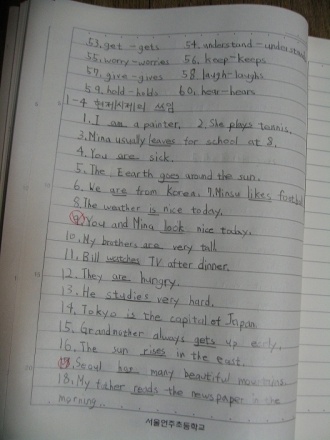 53. get - gets 54. understand - understands
55. worry - worries 56. keep - keeps
57. give - gives 58. laugh - laughs
59. hold - holds 60. hear - hears
1-4 현재시제의 쓰임
1. I am a painter. 2. She plays tennis.
3. Mina usually leaves for school at 8.
4. You are sick.
5. The Eearth goes around the sun.
6. We are from Korea. 7. Minsu likes football
8. The weather is nice today.
9. You and Mina look nice today.
10. My brothers are very tall
11. Bill watches TV after dinner.
12. They are hungry.
13. He studies very hard.
14. Tokyo is the capital of Japan.
15. Grandmother always gets up early.
16. The sun rises in the east.
17. Seoul has many beautiful mountains.
18. My father reads the newspaper in the
morning.